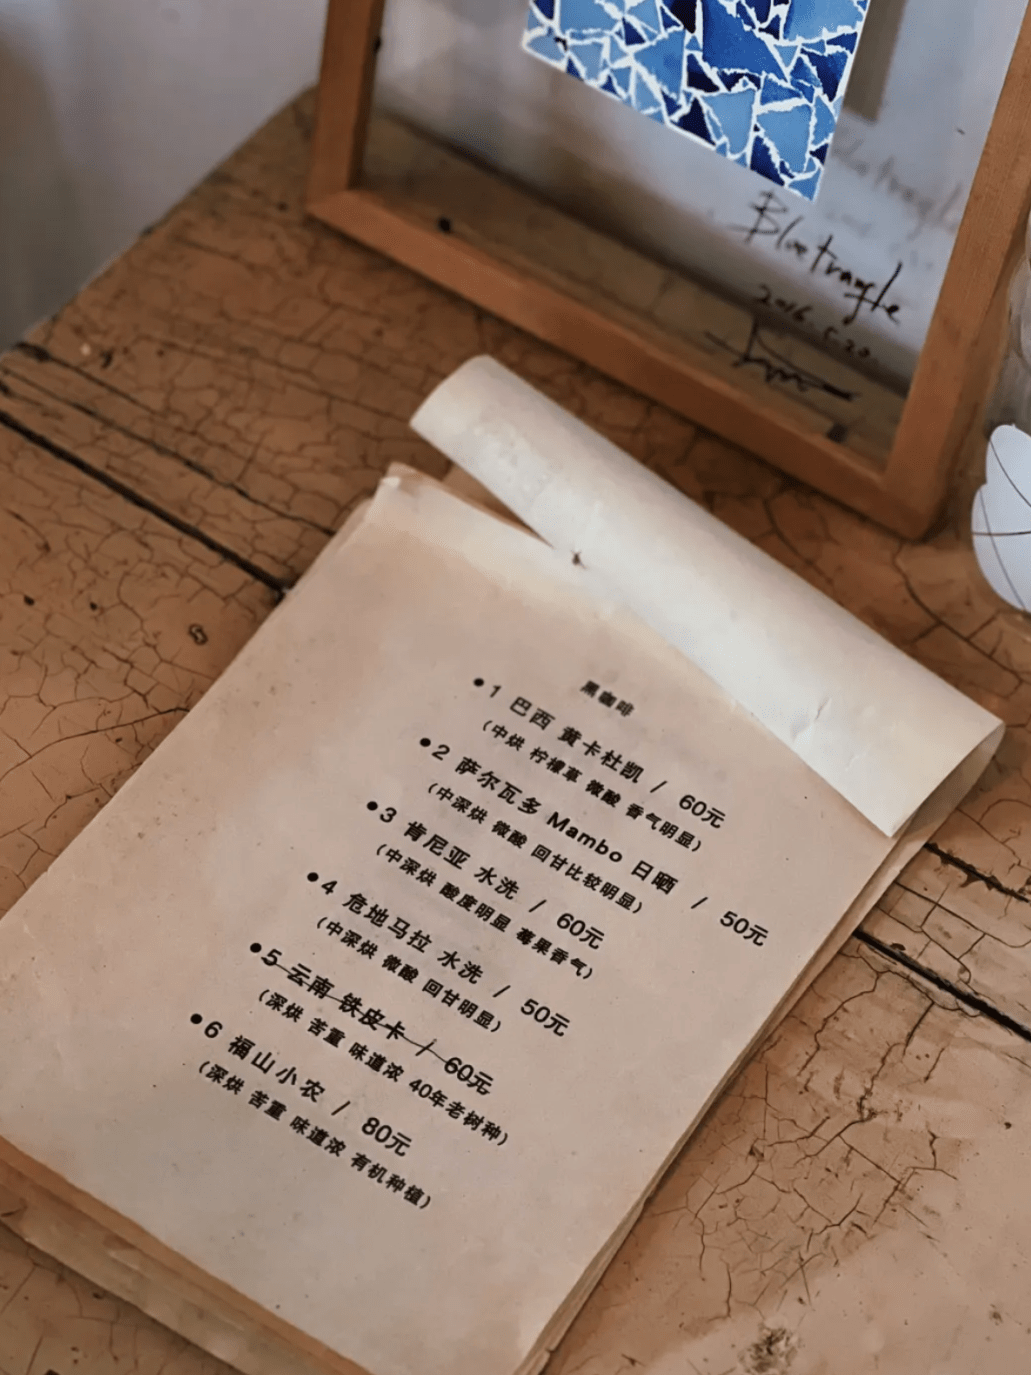 Bluetriangle
2016.5.20
黑咖啡
•1 巴西 黄卡杜凯 / 60元
(中烘 柠檬草 微酸 香气明显)
•2 萨尔瓦多 Mambo 日晒 / 50元
(中深烘 微酸 回甘比较明显)
•3 肯尼亚 水洗 / 60元
(中深烘 酸度明显 莓果香气)
•4 危地马拉 水洗 / 50元
(中深烘 微酸 回甘明显)
•5 云南 铁皮卡 / 60元
(深烘 苦重 味道浓 40年老树种)
•6 福山小农 / 80元
(深烘 苦重 味道浓 有机种植)